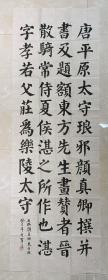 唐平原太守琅邪顏真卿撰并
書及題額東方先生畫贊者晉
散騎常侍夏侯湛之所作也湛
字孝若父莊爲樂陵太守